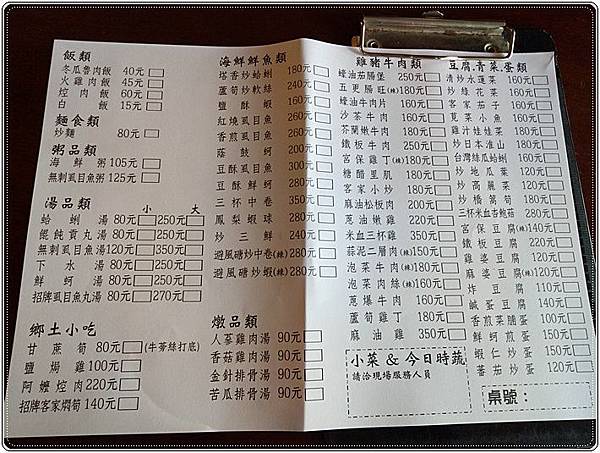 飯類
冬瓜魯肉飯 40元
火雞肉飯 45元
焢肉飯 60元
白飯 15元
麵食類
炒麵 80元
粥品類
海鮮粥 105元
無刺虱目魚粥 125元
湯品類 小 大
蛤蜊湯 80元 250元
餛飩貢丸湯 80元 250元
無刺虱目魚湯 120元 350元
下水湯 80元 250元
鮮蚵湯 80元 250元
招牌虱目魚丸湯 80元 270元
鄉土小吃
甘蔗筍 80元 (牛蒡絲打底)
鹽焗雞 100元
阿嬤焢肉 220元
招牌客家燜筍 140元
海鮮鮮魚類
塔香炒蛤蜊 180元
蘆筍炒軟絲 240元
鹽酥蝦 160元
紅燒虱目魚 280元
香煎虱目魚 280元
蔭鼓蚵 200元
豆酥虱目魚 280元
豆酥鮮蚵 200元
三杯中卷 350元
鳳梨蝦球 280元
炒三鮮 240元
避風磄炒中卷(辣) 350元
避風磄炒蝦(辣) 280元
燉品類
人蔘雞肉湯 90元
香菇雞肉湯 90元
金針排骨湯 90元
苦瓜排骨湯 90元
雞豬牛肉類
蠔油茄腸堡 250元
五更腸旺(辣) 180元
蠔油牛肉片 160元
沙茶牛肉 160元
芥蘭嫩牛肉 180元
鐵板牛肉 250元
宮保雞丁(辣) 180元
糖醋里肌 180元
客家小炒 180元
麻油松板肉 200元
蔥油嫩雞 220元
米血三杯雞 350元
蒜泥二層肉(辣) 150元
泡菜牛肉(辣) 180元
泡菜肉絲(辣) 160元
蔥爆牛肉 160元
蘆筍雞丁 180元
麻油雞 350元
小菜 & 今日時蔬
請洽現場服務人員
豆腐.青菜.蛋類
清炒水蓮菜 160元
炒綠花菜 160元
客家茄子 160元
莧菜小魚 160元
雞汁娃娃菜 180元
炒日本淮山 160元
台灣絲瓜蛤蜊 160元
炒地瓜葉 120元
炒高麗菜 120元
炒檳榔筍 160元
三杯米血杏鮑菇 200元
宮保豆腐(辣) 140元
鐵板豆腐 220元
雞婆豆腐 120元
麻婆豆腐(辣) 120元
炸豆腐 110元
鹹蛋豆腐 140元
香煎菜脯蛋 100元
鮮蚵煎蛋 150元
蝦仁炒蛋 150元
蕃茄炒蛋 120元
桌號：